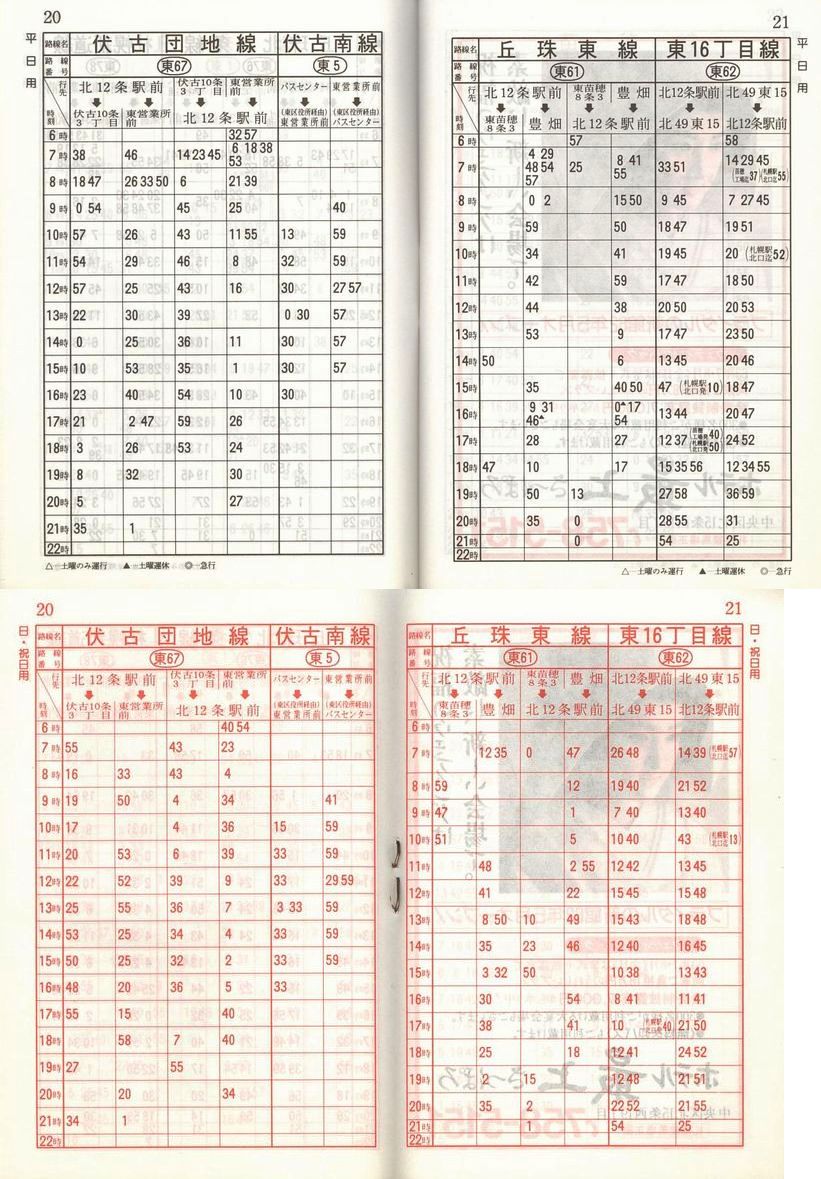 20
平日用
路線名 伏古団地線 伏古南線
路線番号 東67 東5
行先 北12条駅前 伏古10条3丁目 東営業所前 バスセンター 東営業所前
時刻 伏古10条3丁目 東営業所前 北12条駅前 (東区役所経由)東営業所前 (東区役所経由)バスセンター
6時 32 57
7時 38 46 14 23 45 6 18 38 53
8時 18 47 26 33 50 6 21 39
9時 0 54 45 25 40
10時 57 26 43 11 55 13 59
11時 54 29 46 8 32 59
12時 57 25 43 16 30 27 57
13時 22 30 39 0 30 57
14時 0 25 36 11 30 57
15時 10 53 35 1 30 57
16時 23 40 54 10 30
17時 21 2 47 59 26
18時 3 26 53 24
19時 8 32 30
20時 5 27
21時 35 1
22時
△─土曜のみ運行 ▲─土曜運休 ◎─急行
21
平日用
路線名 丘珠東線 東16丁目線
路線番号 東61 東62
行先 北12条駅前 東苗穂8条3 豊畑 北12条駅前 北49東15
時刻 東苗穂8条3 豊畑 北12条駅前 北49東15 北12条駅前
6時 57 58
7時 4 29 48 54 57 25 8 41 55 33 51 14 29 45 (苗穂工場迄37) (札幌駅北口迄55)
8時 0 2 15 50 9 45 7 27 45
9時 59 50 18 47 19 51
10時 34 41 19 45 20 (札幌駅北口迄52)
11時 42 59 17 47 18 50
12時 44 38 20 50 20 53
13時 53 9 17 47 23 50
14時 50 6 13 45 20 46
15時 35 40 50 47 (札幌駅北口発10) 18 47
16時 9 31 46▲ 0▲ 17 54 13 44 20 47
17時 28 27 12 37 (苗穂工場発40 札幌駅北口発50) 24 52
18時 47 10 17 15 35 56 12 34 55
19時 50 13 27 58 36 59
20時 35 0 28 55 31
21時 0 54 25
22時
△─土曜のみ運行 ▲─土曜運休 ◎─急行
20
日・祝日用
路線名 伏古団地線 伏古南線
路線番号 東67 東5
行先 北12条駅前 伏古10条3丁目 東営業所前 バスセンター 東営業所前
時刻 伏古10条3丁目 東営業所前 北12条駅前 (東区役所経由)東営業所前 (東区役所経由)バスセンター
6時 40 54
7時 55 43 23
8時 16 33 43 4
9時 19 50 4 34 41
10時 17 4 36 15 59
11時 20 53 6 39 33 59
12時 22 52 39 9 33 29 59
13時 25 55 36 7 3 33 59
14時 53 25 34 4 33 59
15時 50 25 32 2 33 59
16時 48 20 36 5 33
17時 55 15 40
18時 58 7 40
19時 27 55
20時 20 34
21時 34 1
22時
21
日・祝日用
路線名 丘珠東線 東16丁目線
路線番号 東61 東62
行先 北12条駅前 東苗穂8条3 豊畑 北12条駅前 北49東15
時刻 東苗穂8条3 豊畑 北12条駅前 北49東15 北12条駅前
6時
7時 12 35 0 47 26 48 14 39 (札幌駅北口迄57)
8時 59 12 19 40 21 52
9時 47 1 7 40 13 40
10時 51 5 10 40 43 (札幌駅北口迄13)
11時 48 2 55 12 42 13 45
12時 41 22 15 45 15 48
13時 8 50 10 49 15 43 18 48
14時 35 23 46 12 40 16 45
15時 3 32 50 10 38 13 43
16時 30 54 8 41 11 41
17時 38 41 10 (札幌駅北口発40) 21 50
18時 25 18 12 41 24 52
19時 2 15 12 48 21 51
20時 35 2 22 52 21 55
21時 1 54 25
22時